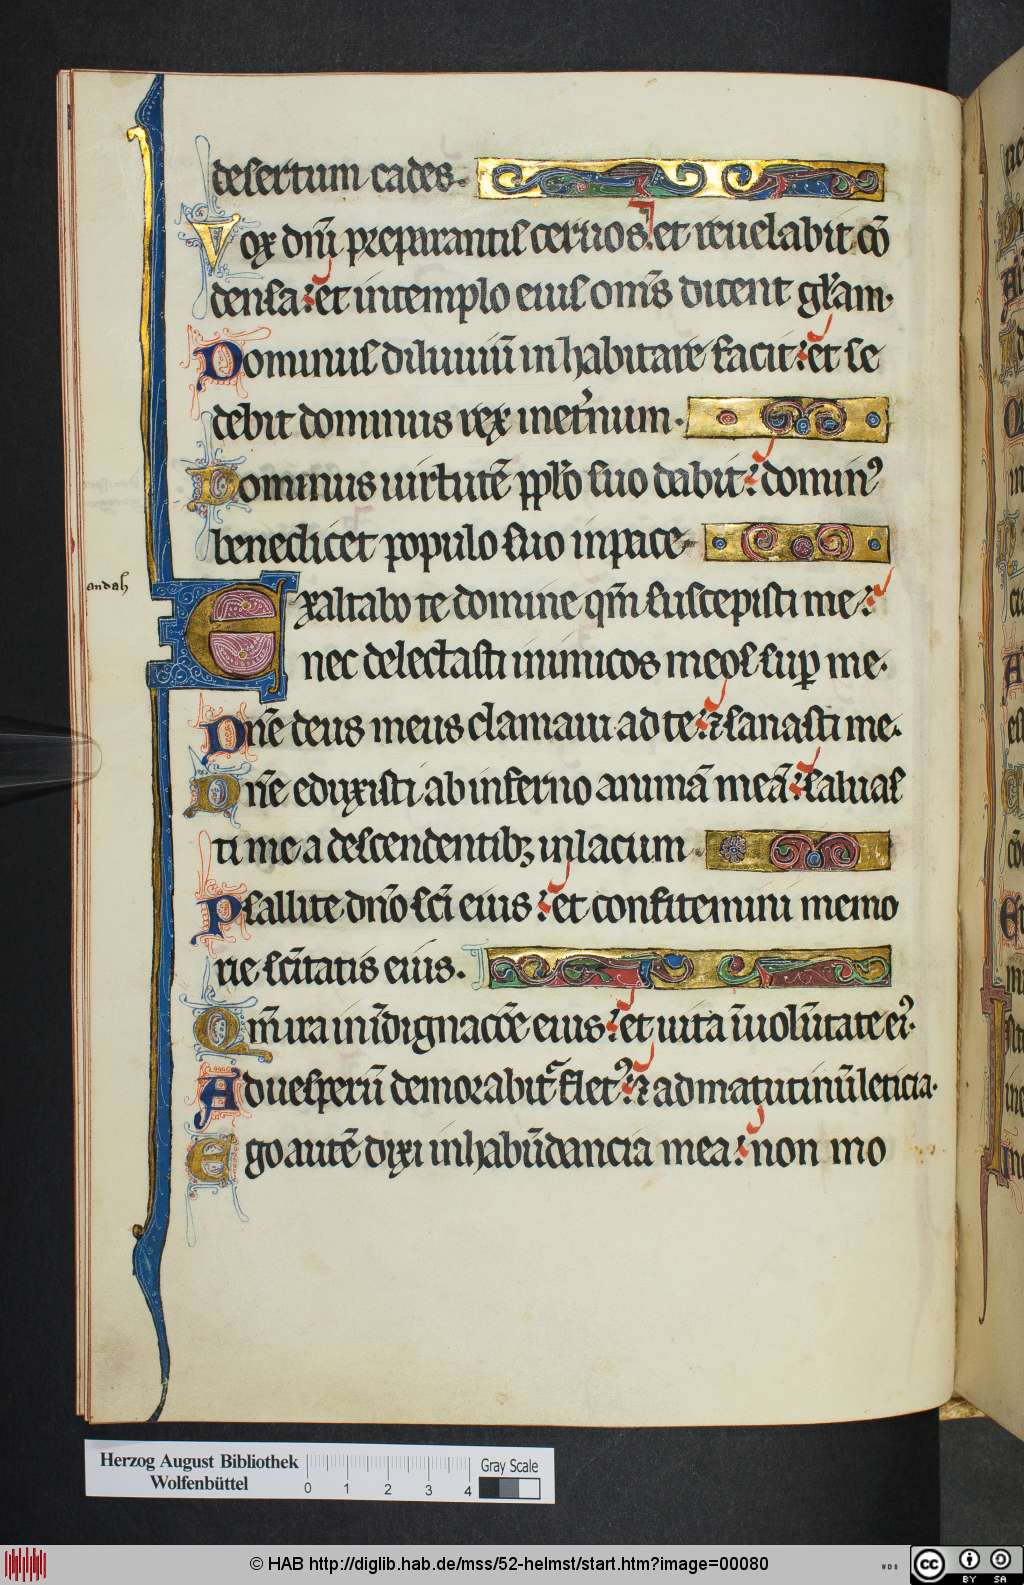 desertum cades.
Vox dn̄i preparantis ceruos: et reuelabit cō
densa: et in templo eius om̄s dicent gl̄am.
Dominus diluuiū inhabitare facit: et se
debit dominus rex inet̄num.
Dominus uirtutē ppl̄o suo dabit: dominꝰ
benedicet populo suo in pace
andah
Exaltabo te domine qm̄ suscepisti me:
nec delectasti inimicos meos sup̄ me.
Dn̄e deus meus clamaui ad te: ⁊ sanasti me.
Dn̄e eduxisti ab inferno animā meā: saluas
ti me a descendentibꝫ in lacum
Psallite dn̄o sc̄i eius: et confitemini memo
rie sc̄itatis eius.
Qm̄ ira in īdignac̄ōe eius: et uita ī uolūtate eiꝰ.
Ad uesperū demorabit᷑ fletꝰ: ⁊ ad matutinū leticia.
Ego autē dixi in habūdancia mea: non mo
Herzog August Bibliothek
Wolfenbüttel
0 1 2 3 4
Gray Scale
© HAB http://diglib.hab.de/mss/52-helmst/start.htm?image=00080
WDB
cc BY SA